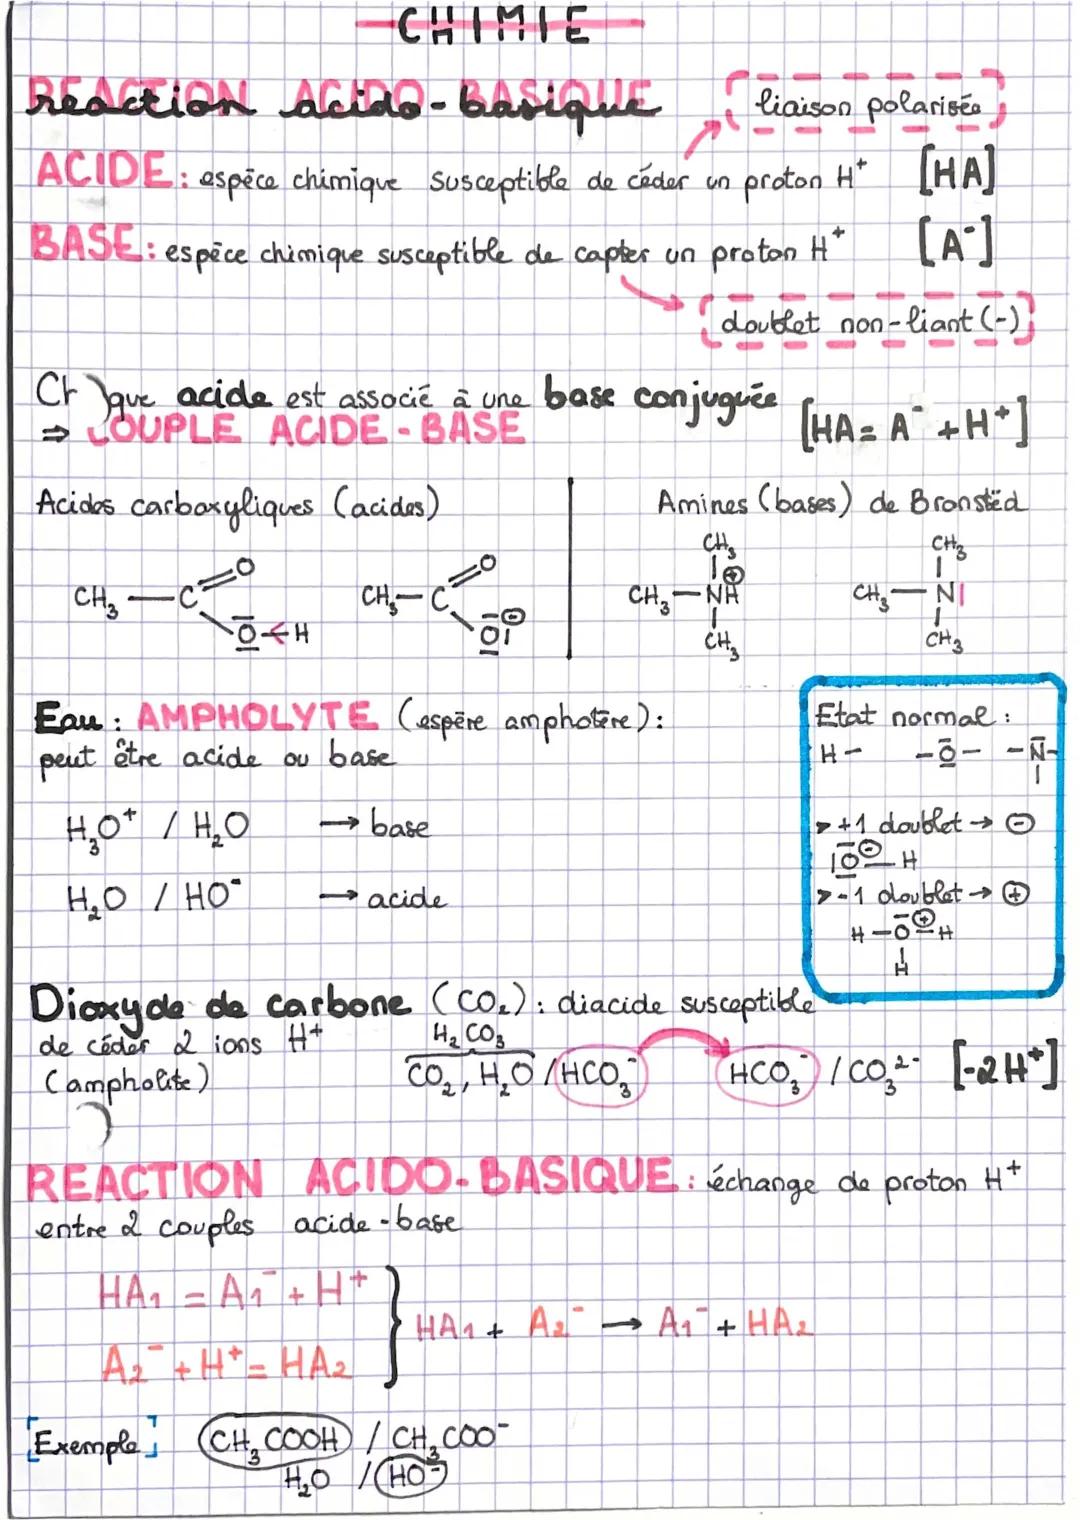 CHIMIE
REACTION ACIDO-BASIQUE
réaction acido-basique
liaison polarisée
ACIDE : espèce chimique susceptible de céder un proton H⁺ [HA]
BASE : espèce chimique susceptible de capter un proton H⁺ [A⁻]
doublet non-liant (-)
que acide est associé à une base conjuguée
⇒ COUPLE ACIDE-BASE [HA = A⁻ + H⁺]
Acides carboxyliques (acides)
Amines (bases) de Bronstëd
CH₃ — C O O H
CH₃ — C O O ⊖
CH₃
CH₃ — NH ⊕
CH₃
CH₃
CH₃ — N|
CH₃
Eau : AMPHOLYTE (espère amphotère) :
peut être acide ou base
H₃O⁺ / H₂O → base
H₂O / HO⁻ → acide
Etat normal :
H- -O- -N-
> +1 doublet → ⊖
|O⊖-H
> -1 doublet → ⊕
H-O⊕-H
H
Dioxyde de carbone (CO₂) : diacide susceptible
de céder 2 ions H+
(ampholite)
H₂CO₃
CO₂, H₂O / HCO₃⁻ HCO₃⁻ / CO₃²⁻ [-2H⁺]
REACTION ACIDO-BASIQUE : échange de proton H+
entre 2 couples acide-base
HA₁ = A₁⁻ + H⁺
A₂⁻ + H⁺ = HA₂
HA₁ + A₂⁻ → A₁⁻ + HA₂
[Exemple] CH₃COOH / CH₃COO⁻
H₂O / HO⁻